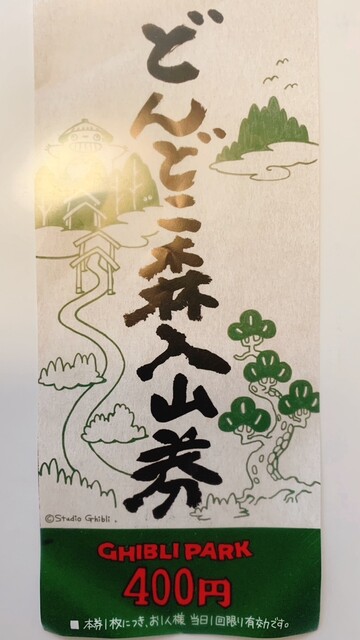 どんどこ森入山券
©Studio Ghibli.
GHIBLI PARK
400円
■ 本券1枚につき、お1人様 当日1回限り有効です。